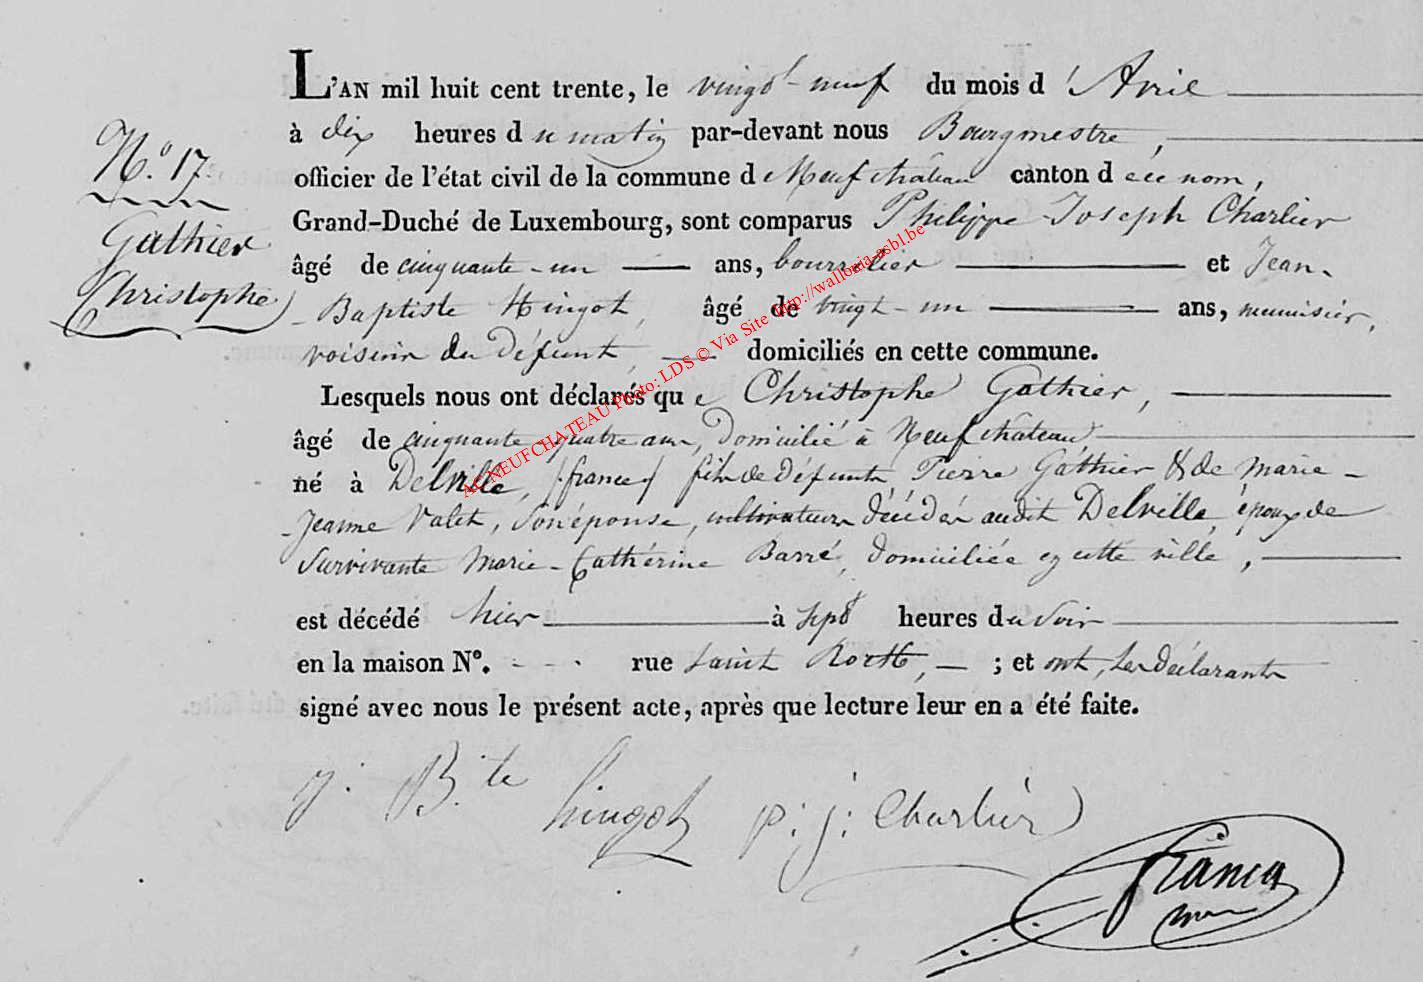 L'AN mil huit cent trente, le vingt-neuf du mois d'Avril
à dix heures du matin par-devant nous Bourgmestre,
officier de l'état civil de la commune de Neufchâteau canton de ce nom,
Grand-Duché de Luxembourg, sont comparus Philippe Joseph Charlier
âgé de cinquante-un ans, bourrelier et Jean-
Baptiste Hingot, âgé de vingt-un ans, menuisier,
voisin du défunt, domiciliés en cette commune.
Lesquels nous ont déclarés que Christophe Gathier,
âgé de cinquante-quatre ans, domicilié à Neufchateau
né à Delville, (france) fils de défunts Pierre Gathier & de marie-
Jeanne Valet, son épouse, cultivateurs décédés audit Delville, époux de
Survivante Marie-Cathérine Barré, domiciliée en cette ville,
est décédé hier à sept heures du soir
en la maison N°. rue Saint Roch, ; et ont, les déclarants
signé avec nous le présent acte, après que lecture leur en a été faite.
N.° 17.
Gathier
Christophe
j. B.te hingot p: j: Charlier
AC NEUFCHATEAU Photo: LDS © Via Site http://wallonia-asbl.be